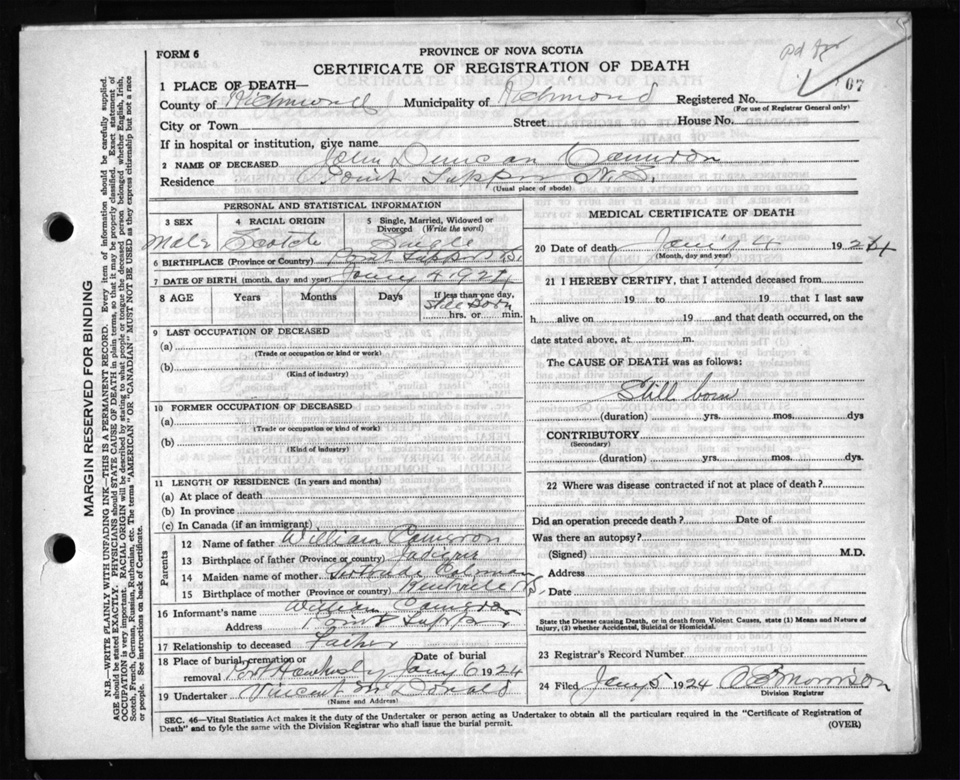 Pd
67
FORM 6
PROVINCE OF NOVA SCOTIA
CERTIFICATE OF REGISTRATION OF DEATH
1 PLACE OF DEATH—
County of Richmond Municipality of Richmond Registered No.
(For use of Registrar General only)
City or Town Street House No.
If in hospital or institution, give name
2 NAME OF DECEASED John Duncan Cameron
Residence Point Tupper N.S.
(Usual place of abode)
PERSONAL AND STATISTICAL INFORMATION
3 SEX 4 RACIAL ORIGIN 5 Single, Married, Widowed or Divorced (Write the word)
Male Scotch Single
6 BIRTHPLACE (Province or Country) Point Tupper N.S.
7 DATE OF BIRTH (month, day and year) Jany 4 1924
8 AGE Years Months Days If less than one day,
Still Born
hrs. or min.
9 LAST OCCUPATION OF DECEASED
(a)
(Trade or occupation or kind or work)
(b)
(Kind of industry)
10 FORMER OCCUPATION OF DECEASED
(a)
(Trade or occupation or kind of work)
(b)
(Kind of industry)
11 LENGTH OF RESIDENCE (In years and months)
(a) At place of death
(b) In province
(c) In Canada (if an immigrant)
Parents
12 Name of father William Cameron
13 Birthplace of father (Province or country)
14 Maiden name of mother Gertrude
15 Birthplace of mother (Province or country) N.S.
16 Informant's name William Cameron
Address Point Tupper
17 Relationship to deceased Father
18 Place of burial, cremation or removal Port Hawkesbury Date of burial Jany 6 1924
19 Undertaker Vincent McDonald
(Name and Address)
MEDICAL CERTIFICATE OF DEATH
20 Date of death Jany 4 1924
(Month, day and year)
21 I HEREBY CERTIFY, that I attended deceased from
19 to 19 that I last saw
h alive on 19 and that death occurred, on the
date stated above, at m.
The CAUSE OF DEATH was as follows:
Still born
(duration) yrs. mos. dys
CONTRIBUTORY
(Secondary)
(duration) yrs. mos. dys.
22 Where was disease contracted if not at place of death?
Did an operation precede death? Date of
Was there an autopsy?
(Signed) M.D.
Address
Date
State the Disease causing Death, or in death from Violent Causes, state (1) Means and Nature of Injury, (2) whether Accidental, Suicidal or Homicidal.
23 Registrar's Record Number
24 Filed Jany 5 1924 Morrison
Division Registrar
SEC. 46—Vital Statistics Act makes it the duty of the Undertaker or person acting as Undertaker to obtain all the particulars required in the "Certificate of Registration of
Death" and to fyle the same with the Division Registrar who shall issue the burial permit. (OVER)
MARGIN RESERVED FOR BINDING
N.B.—WRITE PLAINLY WITH UNFADING INK—THIS IS A PERMANENT RECORD. Every item of information should be carefully supplied.
AGE should be stated EXACTLY. PHYSICIANS should STATE CAUSE OF DEATH in plain terms, so that it may be properly classified. Exact statement of
OCCUPATION is very important. RACIAL ORIGIN will be described by stating to what people or tongue the deceased person belonged whether English, Irish,
Scotch, French, German, Russian, Ruthenian, etc. The terms "AMERICAN" OR "CANADIAN" MUST NOT BE USED as they express citizenship but not a race
or people. See instructions on back of Certificate.